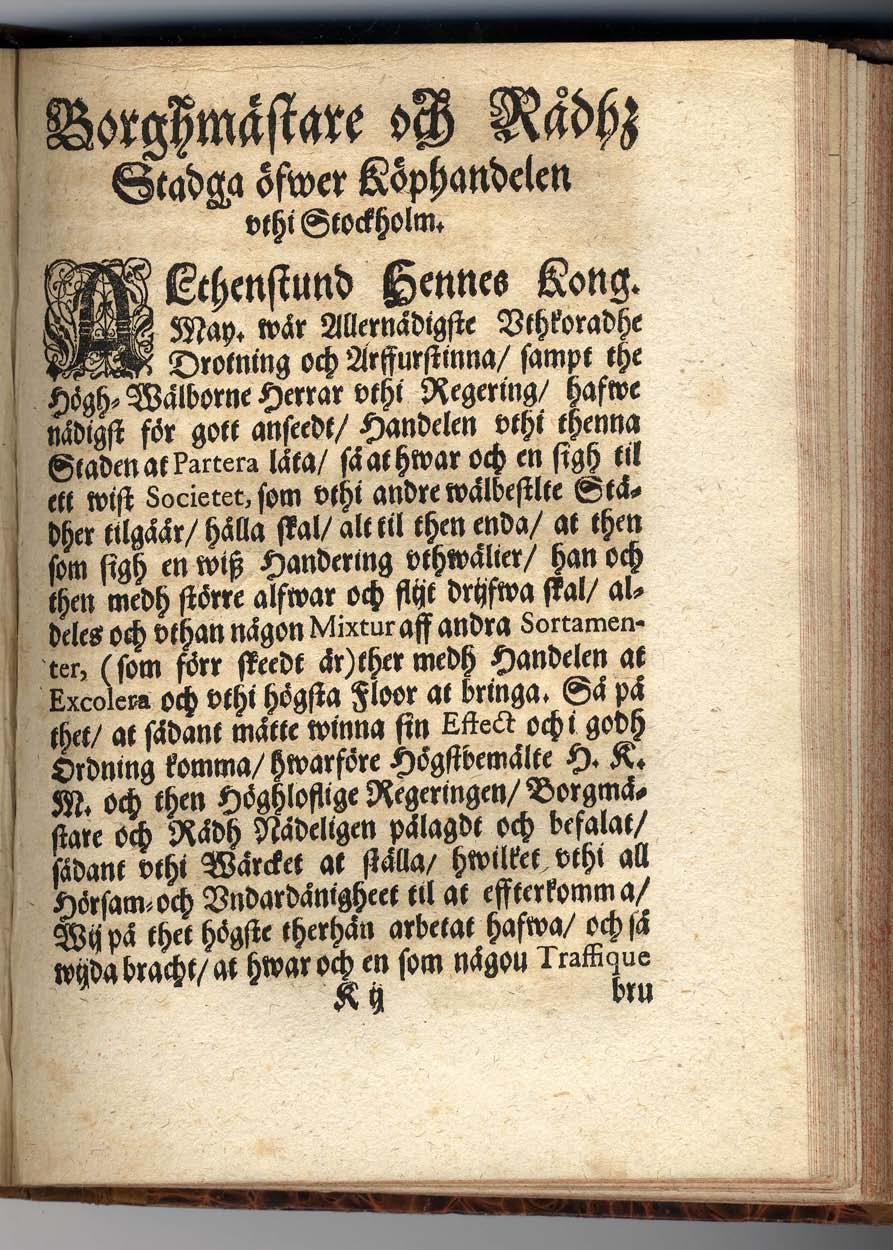 Borghmästare och Rådhz
Stadga öfwer Köphandelen
vthi Stockholm.
ALthenstund Hennes Kong.
May. wår Allernådigste Vthkoradhe
Drotning och Arffurstinna/ sampt the
Högh-Wålborne Herrar vthi Regering/ hafwe
nådigst för gott anseedt/ Handelen vthi thenna
Staden at Partera låta/ så at hwar och en sigh til
ett wist Societet, som vthi andre wålbestlte Stå-
dher tilgåår/ hålla skal/ alt til then enda/ at then
som sigh en wiß Handering vthwålier/ han och
then medh större alfwar och flijt drijfwa skal/ al-
deles och vthan någon Mixtur aff andra Sortamen-
ter, (som förr skeedt år) ther medh Handelen at
Excolera och vthi högsta Floor at bringa. Så på
thet/ at sådant måtte winna sin Effect och i godh
Ordning komma/ hwarföre Högstbemålte H. K.
M. och then Höghloflige Regeringen/ Borgmå-
stare och Rådh Nådeligen pålagdt och befalat/
sådant vthi Wårcket at stålla/ hwilket vthi all
Hörsam-och Vndardånigheet til at effterkomma/
Wij på thet högste therhån arbetat hafwa/ och så
wijda bracht/ at hwar och en som någou Traffique
K ij bru